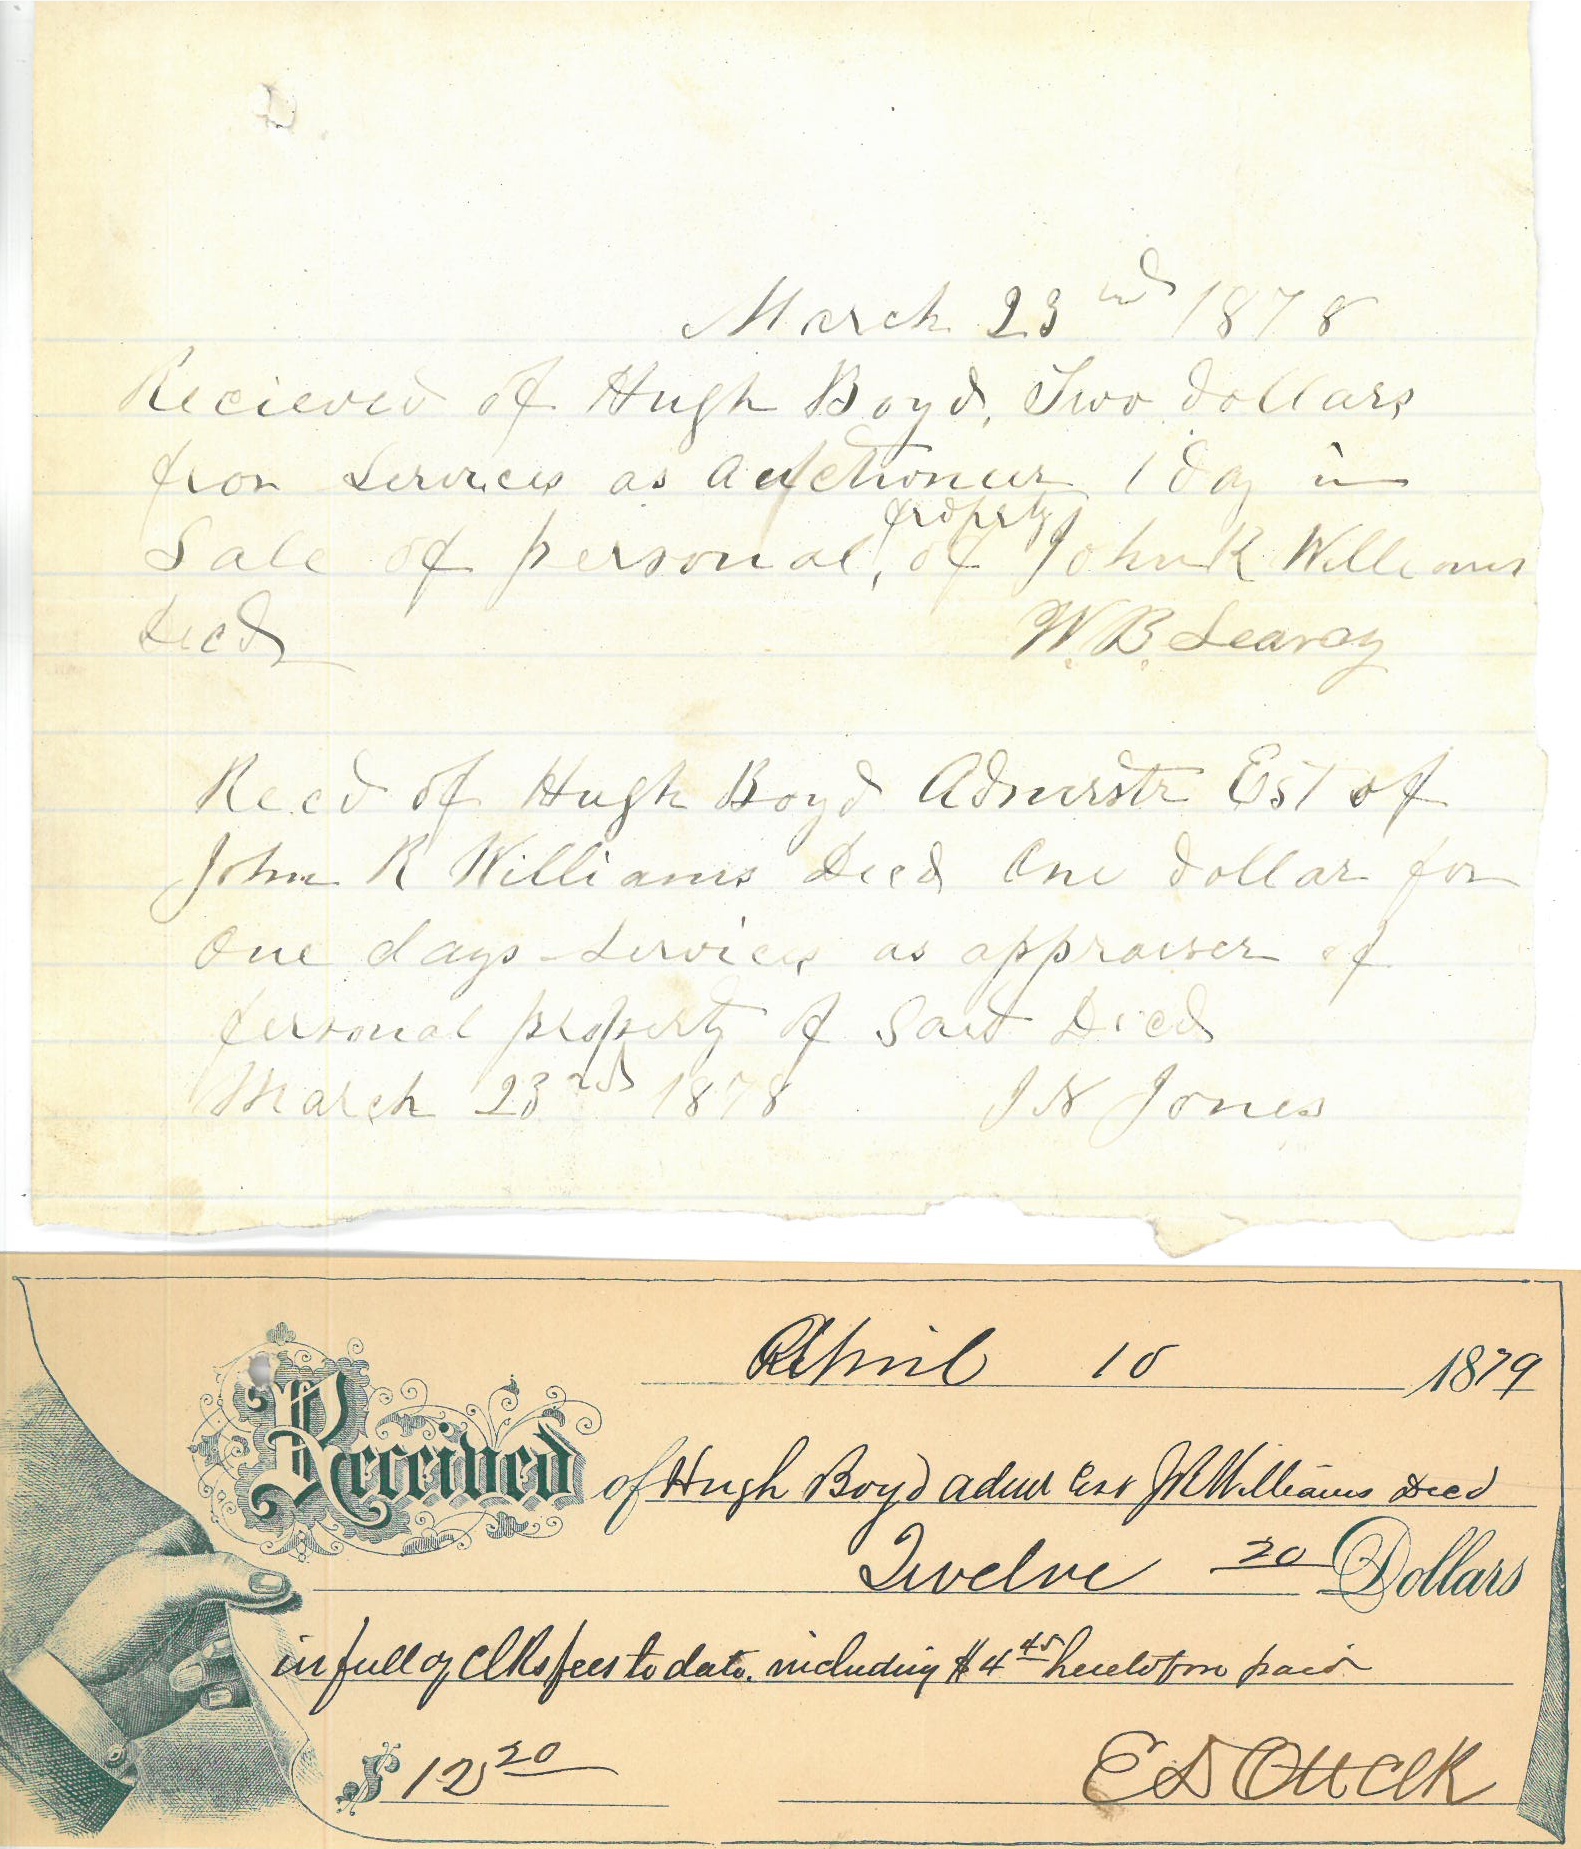 March 23nd 1878
Recieved of Hugh Boyd, Two dollars
for Services as Auctioneer 1 day in
property
Sale of personal, of John R Williams
Decd
W. B. Searcy
Recd of Hugh Boyd Admrstr Est of
John R Williams Decd One dollar for
One days Services as appraiser of
personal property of Said Decd
March 23rd 1878 J N Jones
April 10 1879
Received of Hugh Boyd admr Est J R Williams Decd
Twelve 20 Dollars
in full of Clks fees to date. including $4 45 heretofore paid
$ 12 20
E D Ott Clk